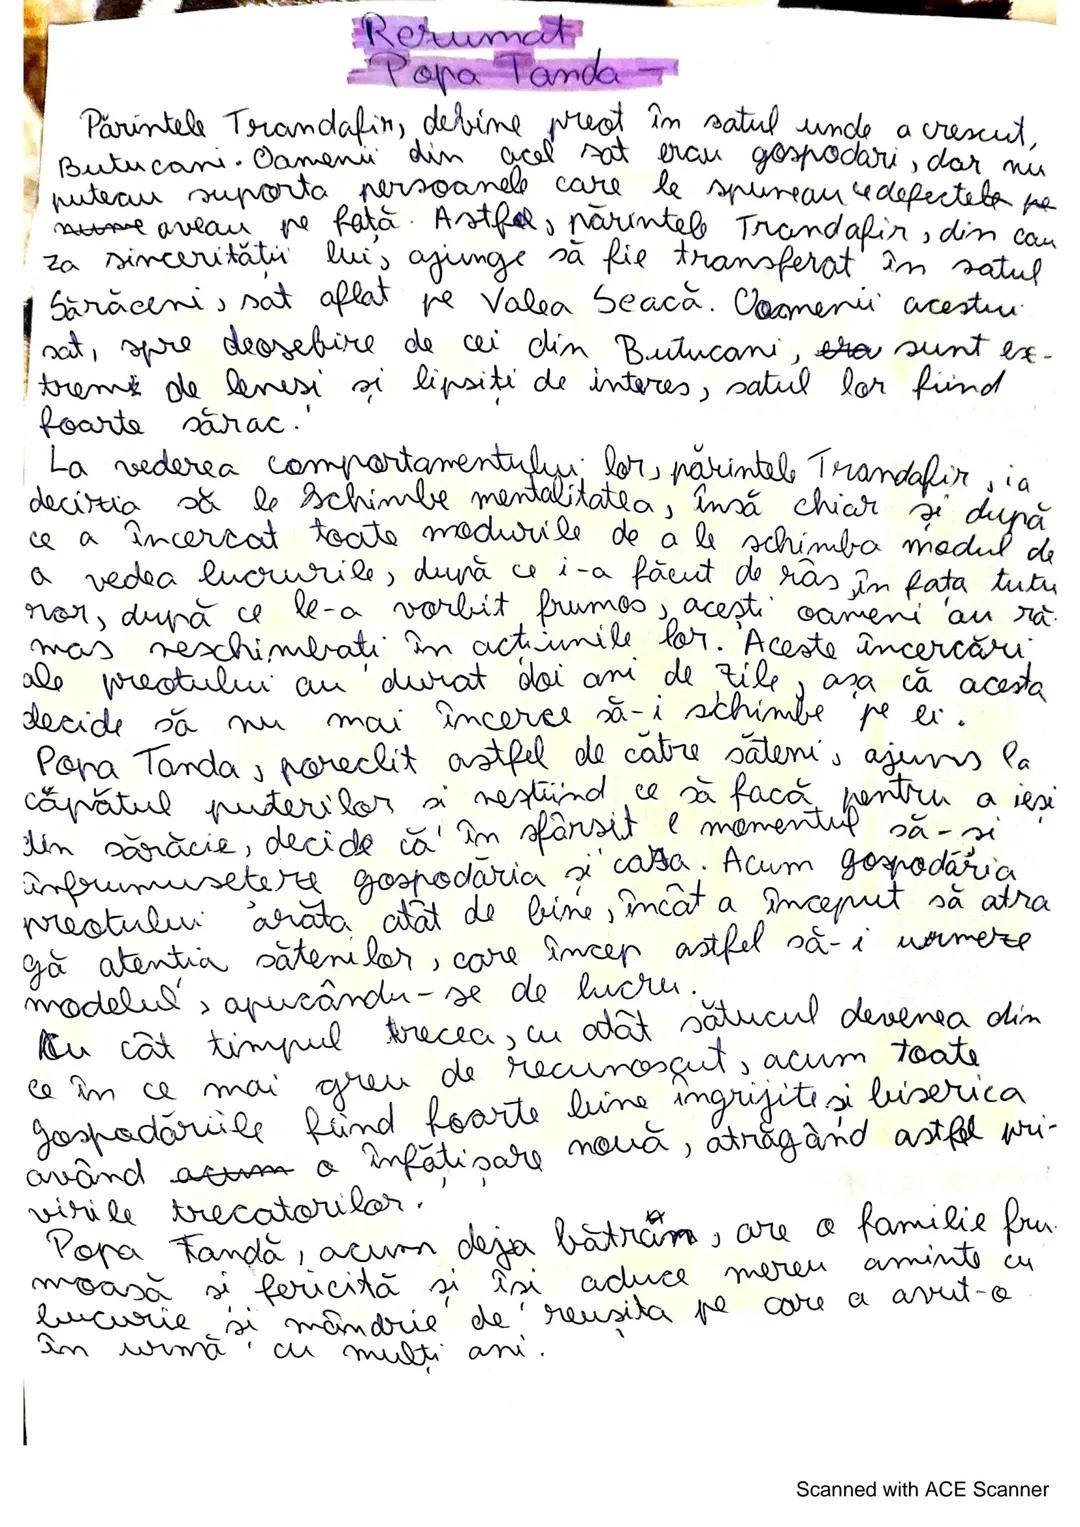 Rezumat
Popa Tanda -
Părintele Trandafir, devine preot în satul unde a crescut,
Butucani. Oamenii din acel sat erau gospodari, dar nu
puteau suporta persoanele care le spuneau defectele pe
aveau pe față. Astfel, părintele Trandafir, din cau
za sincerității lui, ajunge să fie transferat în satul
Sărăceni, sat aflat pe Valea Seacă. Oamenii acestui
sat, spre deosebire de cei din Butucani, sunt ex-
trem de leneși și lipsiți de interes, satul lor fiind
foarte sărac.
La vederea comportamentului lor, părintele Trandafir, ia
decizia să le schimbe mentalitatea, însă chiar și după
ce a încercat toate modurile de a le schimba modul de
a vedea lucrurile, după ce i-a făcut de râs în fața tutu
ror, după ce le-a vorbit frumos, acești oameni au ră-
mas neschimbați în acțiunile lor. Aceste încercări
ale preotului au durat doi ani de zile, așa că acesta
decide să nu mai încerce să-i schimbe pe ei.
Popa Tanda, poreclit astfel de către săteni, ajuns la
căpătul puterilor și neștiind ce să facă pentru a ieși
din sărăcie, decide că în sfârșit e momentul să-și
înfrumusețeze gospodăria și casa. Acum gospodăria
preotului arăta atât de bine, încât a început să atra
gă atenția sătenilor, care încep astfel să-i urmeze
modelul, apucându-se de lucru.
Cu cât timpul trecea, cu atât sătucul devenea din
ce în ce mai greu de recunoscut, acum toate
gospodăriile fiind foarte bine îngrijite și biserica
având acum o înfățișare nouă, atrăgând astfel pri-
virile trecatorilor.
Popa Tandă, acum deja bătrân, are o familie fru-
moasă și fericită și își aduce mereu aminte cu
bucurie și mândrie de reușita pe care a avut-o
în urmă cu mulți ani.
Scanned with ACE Scanner